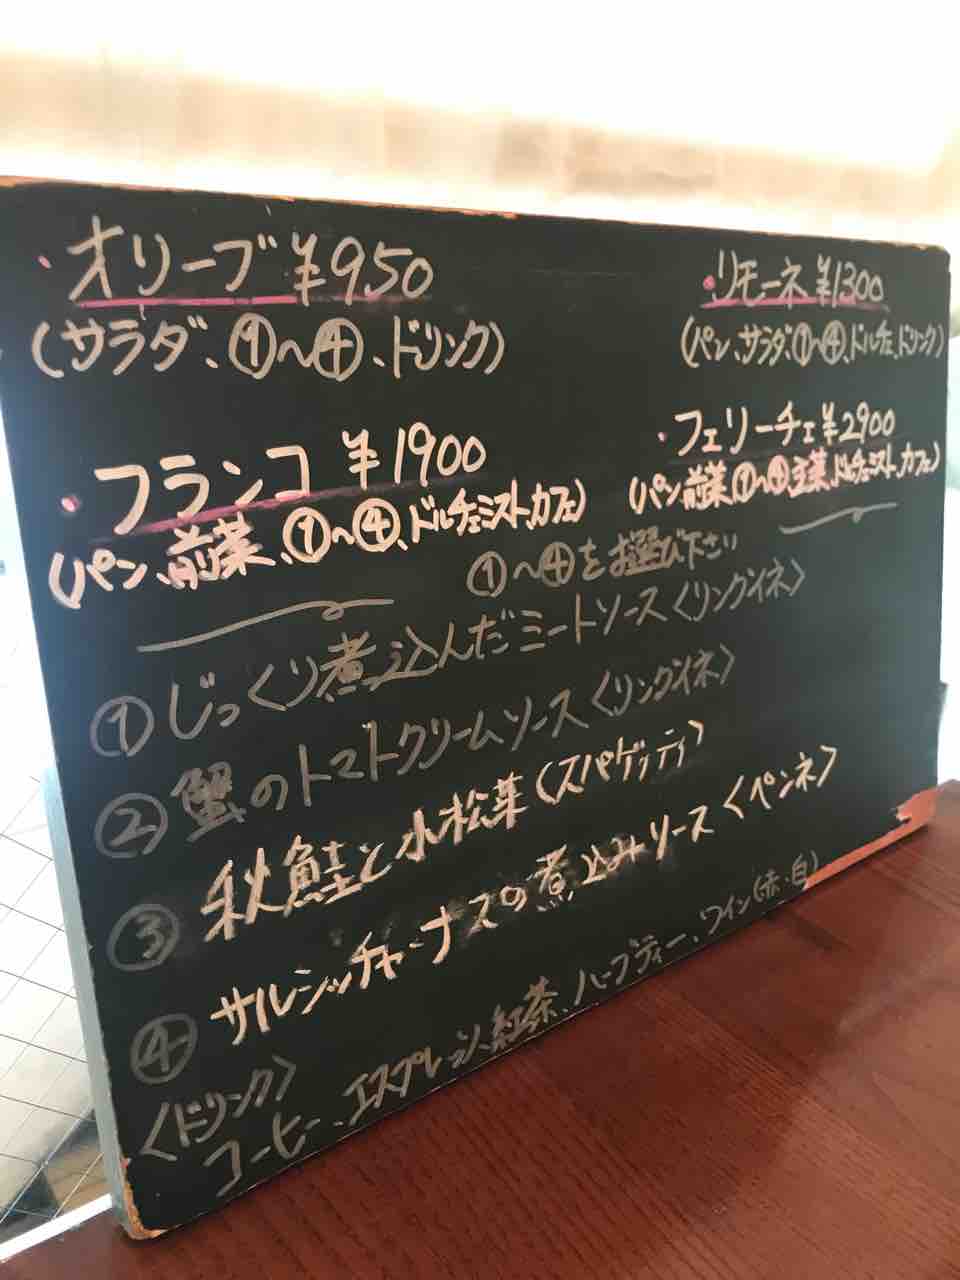 ・オリーブ ¥950
(サラダ、①〜④、ドリンク)
・リモーネ ¥1300
(パン、サラダ、①〜④、ドルチェ、ドリンク)
・フランコ ¥1900
(パン、前菜、①〜④、ドルチェミスト、カフェ)
・フェリーチェ ¥2900
(パン 前菜 ①〜④ 主菜、ドルチェミスト、カフェ)
①〜④をお選び下さい
①じっくり煮込んだミートソース〈リングイネ〉
②蟹のトマトクリームソース〈リングイネ〉
③秋鮭と小松菜(スパゲッティ)
④サルシッチャ・ナスの煮込みソース〈ペンネ〉
〈ドリンク〉
コーヒー、エスプレッソ、紅茶、ハーブティー、ワイン(赤・白)